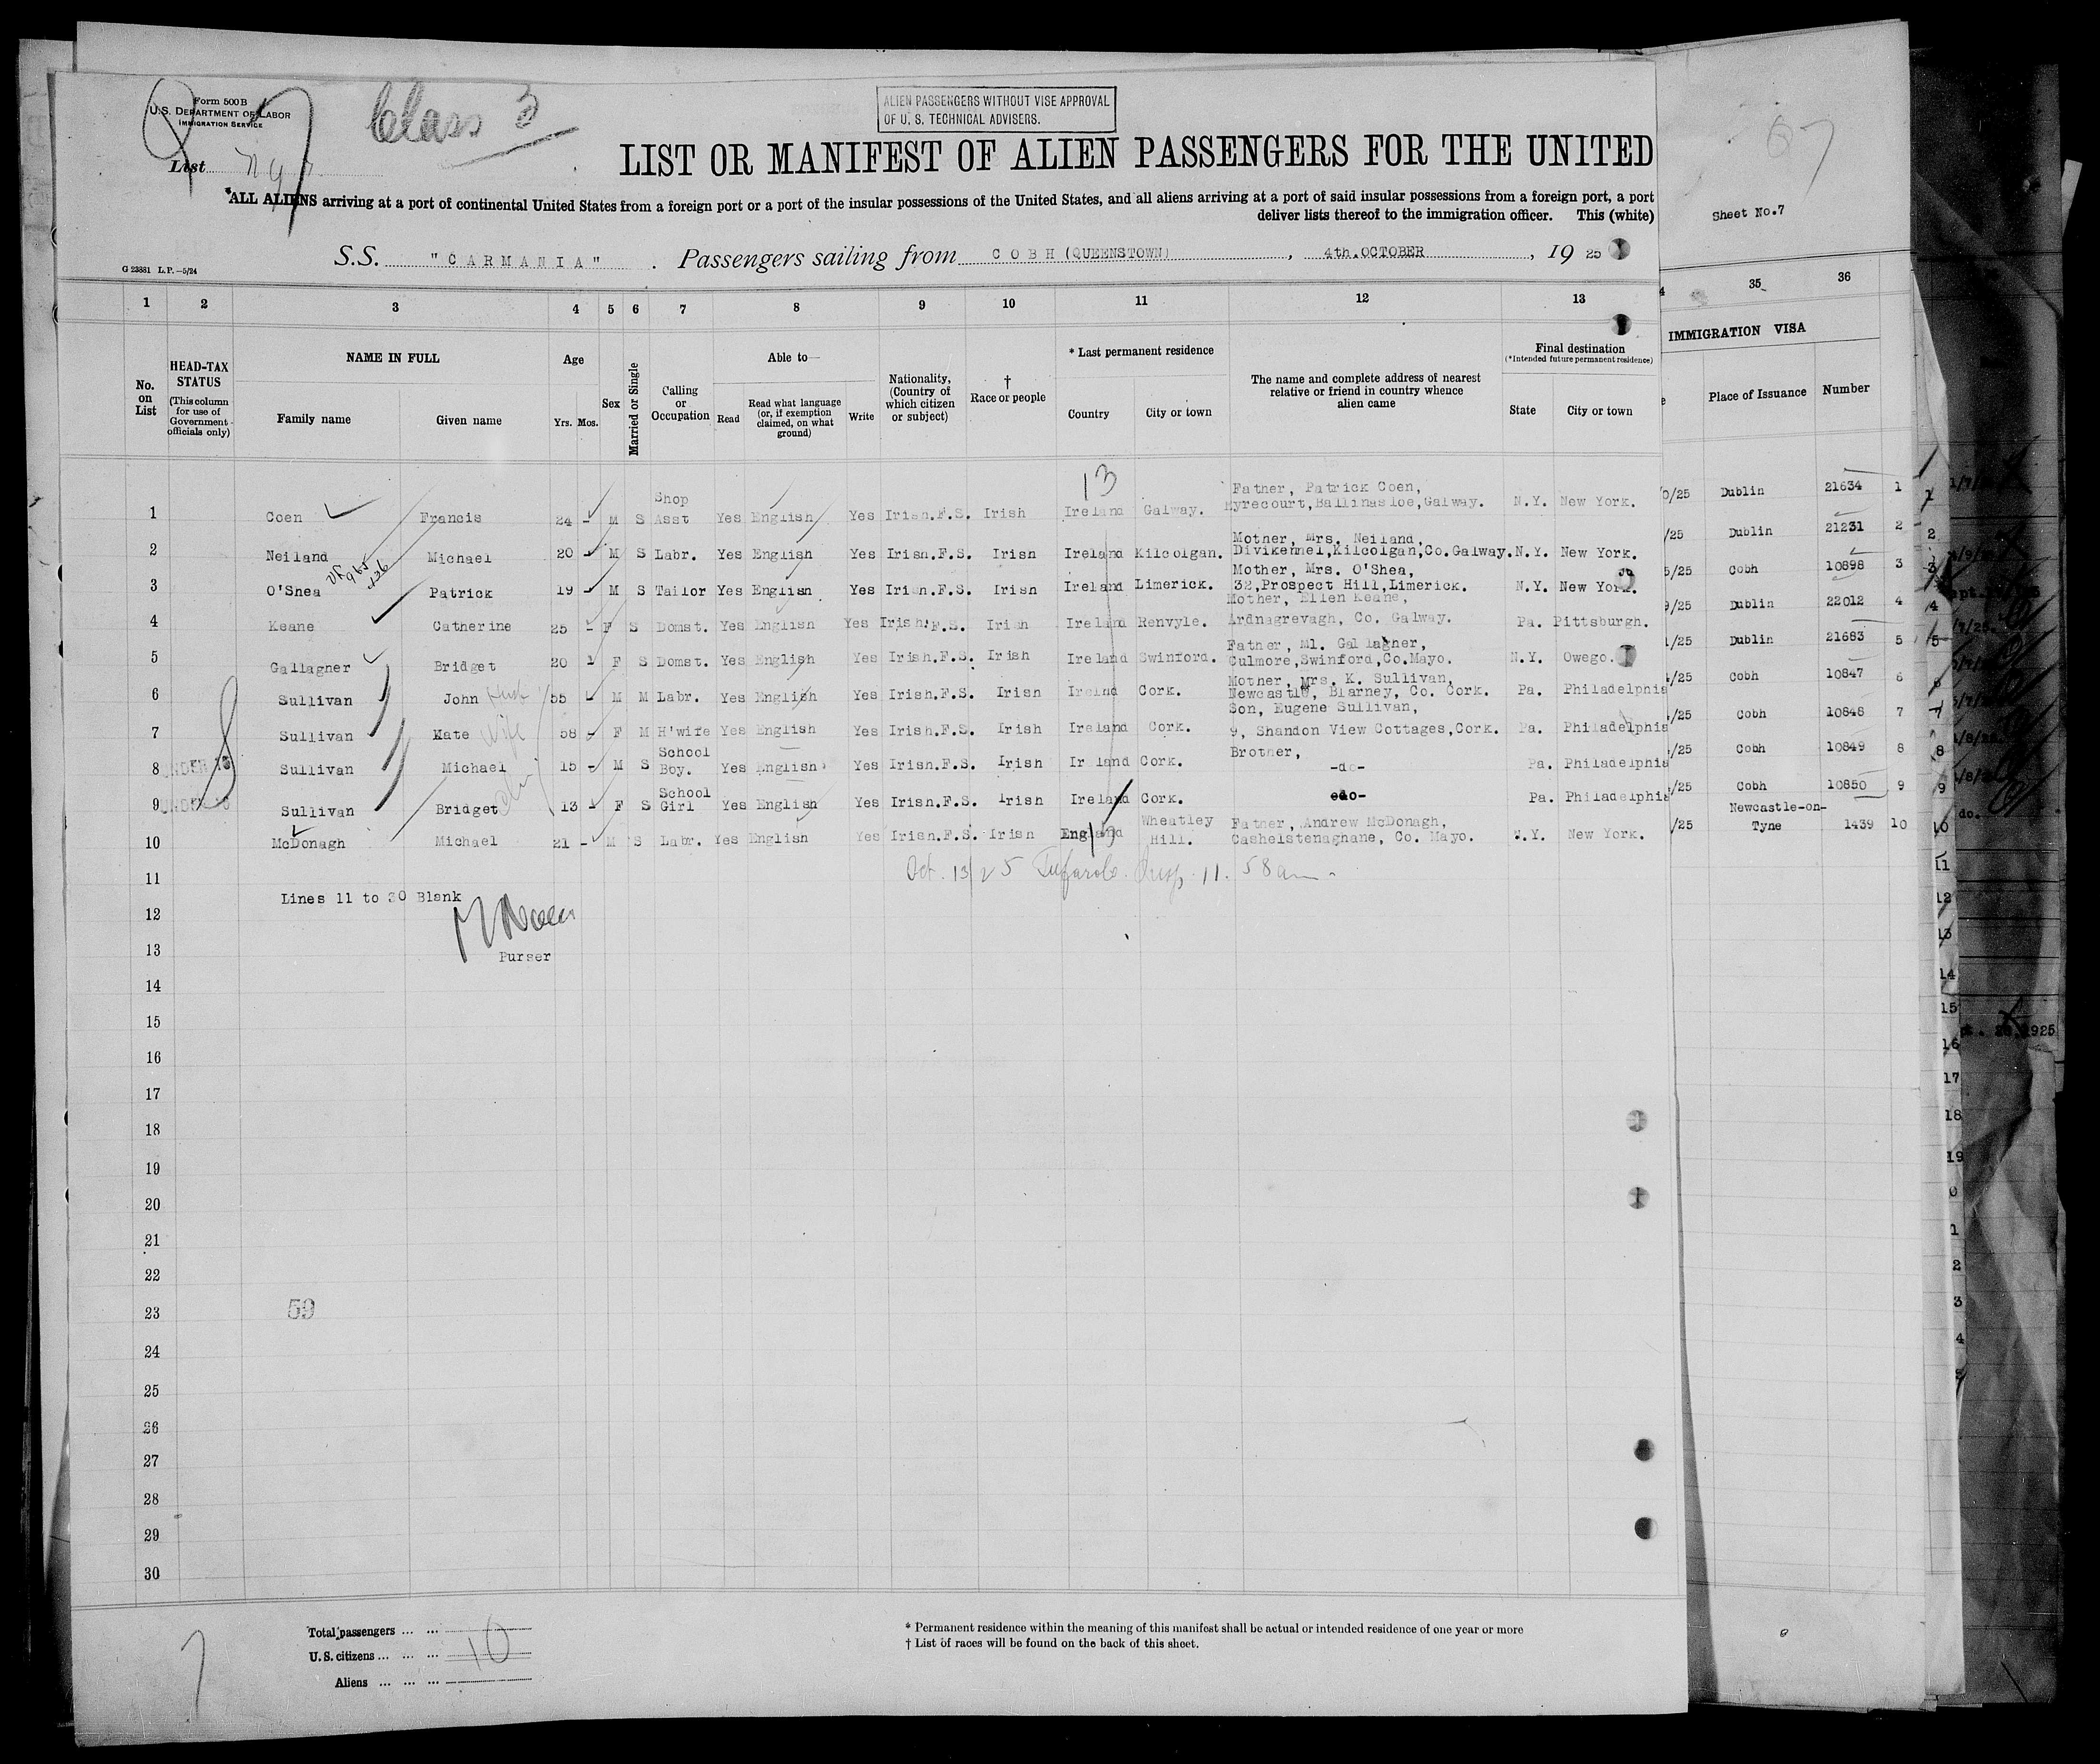 Form 500 B
U.S. DEPARTMENT OF LABOR
IMMIGRATION SERVICE
Class 3
List
ALIEN PASSENGERS WITHOUT VISE APPROVAL
OF U. S. TECHNICAL ADVISERS.
67
LIST OR MANIFEST OF ALIEN PASSENGERS FOR THE UNITED
*ALL ALIENS arriving at a port of continental United States from a foreign port or a port of the insular possessions of the United States, and all aliens arriving at a port of said insular possessions from a foreign port, a port
deliver lists thereof to the immigration officer. This (white)
Sheet No.7
G 23881 L.P.—5/24
S.S. "CARMANIA". Passengers sailing from COBH (QUEENSTOWN), 4th.OCTOBER, 1925
1 2 3 4 5 6 7 8 9 10 11 12 13 35 36
IMMIGRATION VISA
No. on List
HEAD-TAX STATUS (This column for use of Government officials only)
NAME IN FULL
Family name Given name
Age
Yrs. Mos.
Sex
Married or Single
Calling or Occupation
Able to—
Read Read what language (or, if exemption claimed, on what ground) Write
Nationality, (Country of which citizen or subject)
† Race or people
* Last permanent residence
Country City or town
The name and complete address of nearest relative or friend in country whence alien came
Final destination
(*Intended future permanent residence)
State City or town
Place of Issuance Number
13
1 Coen Francis 24 - M S Shop Asst Yes English Yes Irish.F.S. Irish Ireland Galway. Father, Patrick Coen, Eyrecourt,Ballinasloe,Galway. N.Y. New York. 0/25 Dublin 21634 1
2 Neiland Michael 20 - M S Labr. Yes English Yes Irish.F.S. Irish Ireland Kilcolgan. Mother, Mrs. Neiland, Divikennel,Kilcolgan,Co.Galway. N.Y. New York. /25 Dublin 21231 2
3 O'Shea Patrick 19 - M S Tailor Yes English Yes Irish.F.S. Irish Ireland Limerick. Mother, Mrs. O'Shea, 32,Prospect Hill,Limerick. N.Y. New York. 5/25 Cobh 10898 3
4 Keane Catherine 25 - F S Domst. Yes English Yes Irish.F.S. Irish Ireland Renvyle. Mother, Ellen Keane, Ardnagrevagh, Co. Galway. Pa. Pittsburgh. 9/25 Dublin 22012 4
5 Gallagher Bridget 20 - F S Domst. Yes English Yes Irish.F.S. Irish Ireland Swinford. Father, Ml. Gallagher, Culmore,Swinford,Co.Mayo. N.Y. Owego. 1/25 Dublin 21683 5
6 Sullivan John 55 - M M Labr. Yes English Yes Irish.F.S. Irish Irelnd Cork. Mother, Mrs. K. Sullivan, Newcastle, Blarney, Co. Cork. Pa. Philadelphia /25 Cobh 10847 6
7 Sullivan Kate wife 58 - F M H'wife Yes English Yes Irish.F.S. Irish Ireland Cork. Son, Eugene Sullivan, 9, Shandon View Cottages,Cork. Pa. Philadelphia /25 Cobh 10848 7
8 UNDER 16 Sullivan Michael 15 - M S School Boy. Yes English Yes Irish.F.S. Irish Ir land Cork. Brother, -do- Pa. Philadelphia /25 Cobh 10849 8
9 UNDER 16 Sullivan Bridget 13 - F S School Girl Yes English Yes Irish.F.S. Irish Ireland Cork. -do- Pa. Philadelphia /25 Cobh 10850 9
10 McDonagh Michael 21 - M S Labr. Yes English Yes Irish.F.S. Irish England Wheatley Hill. Father, Andrew McDonagh, Cashelstenaghane, Co. Mayo. N.Y. New York. /25 Newcastle-on-Tyne 1439 10
11
Oct. 13/25 11.58am
Lines 11 to 30 Blank
12
13
Purser
14
15
16
17
18
19
20
21
22
23
59
24
25
26
27
28
29
30
Total passengers ... ...
U. S. citizens ... ... ... 10
Aliens ... ... ...
7
* Permanent residence within the meaning of this manifest shall be actual or intended residence of one year or more
† List of races will be found on the back of this sheet.